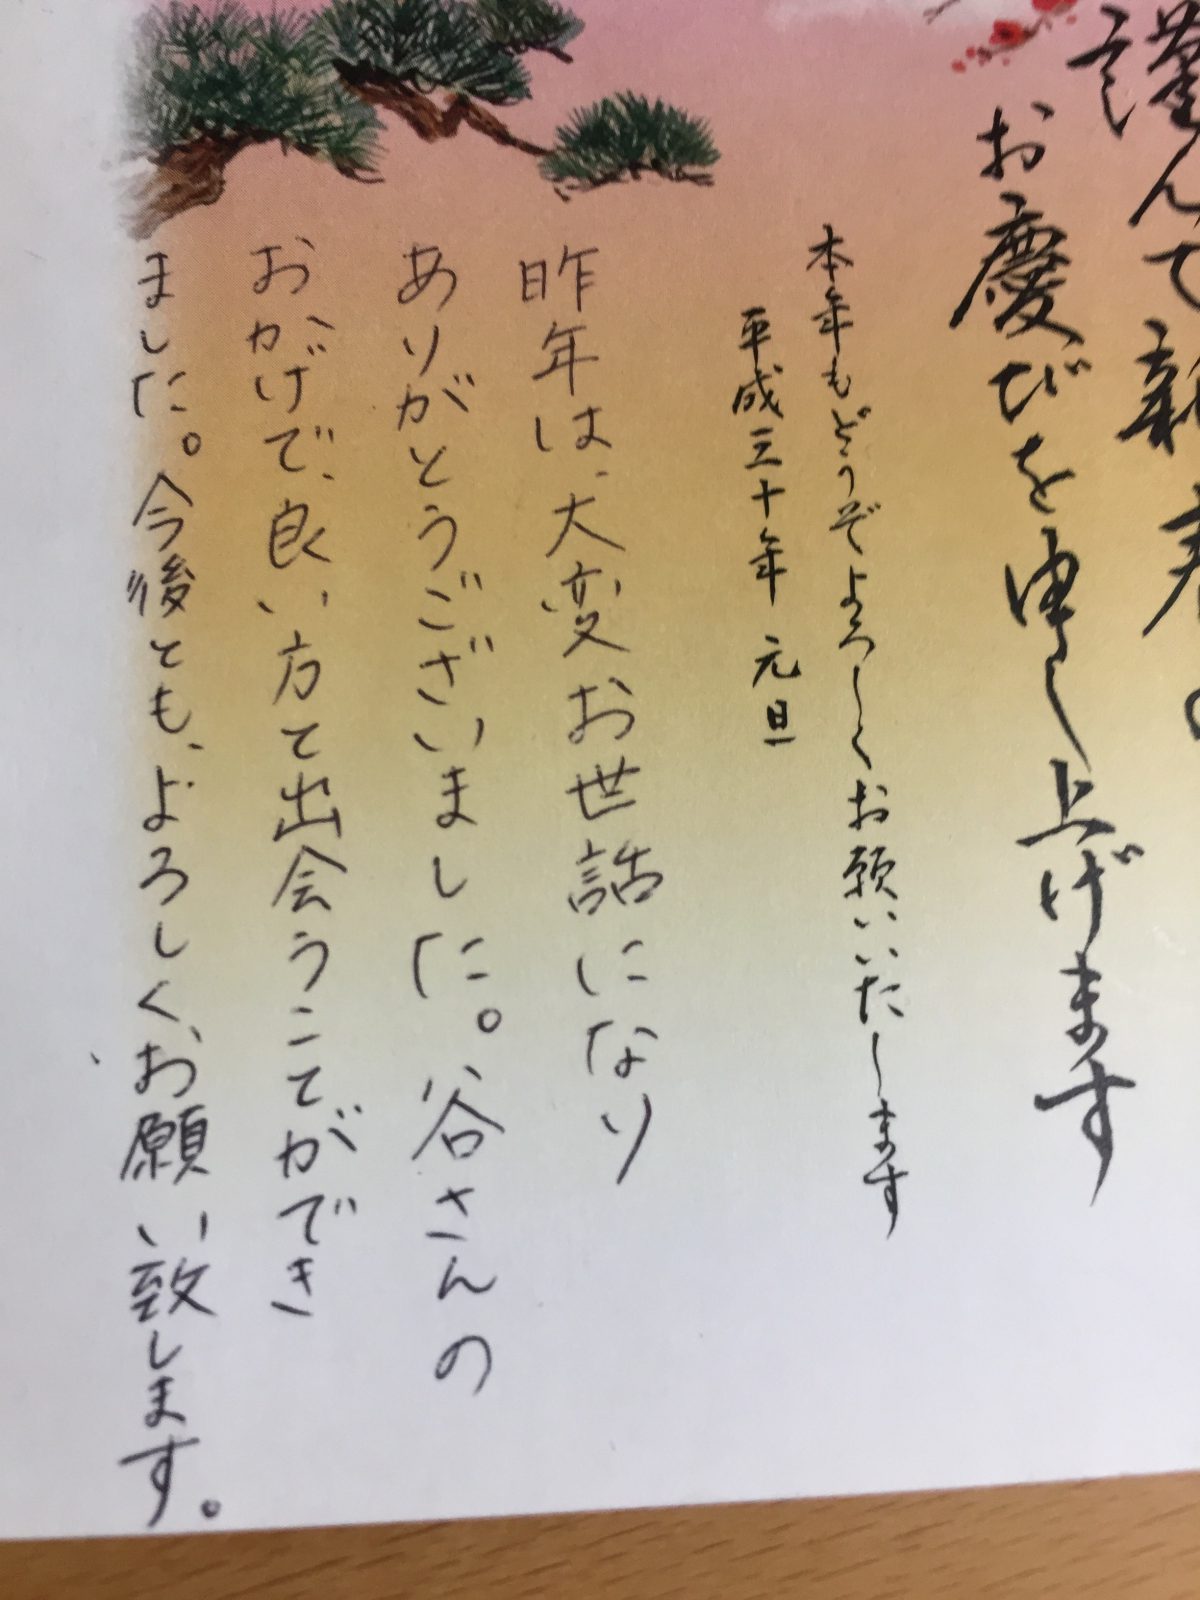 謹んで新春の
お慶びを申し上げます
本年もどうぞよろしくお願いいたします
平成三十年 元旦
昨年は、大変お世話になり
ありがとうございました。谷さんの
おかげで、良い方と出会うことができ
ました。今後とも、よろしく、お願い致します。